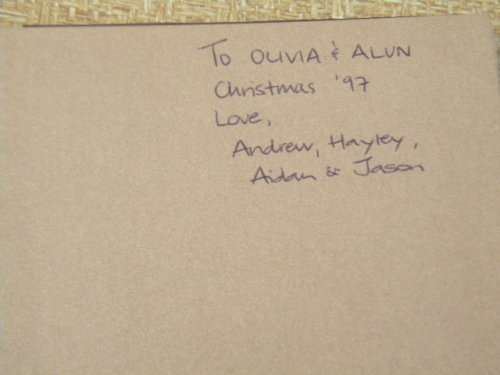 To OLIVIA & ALUN
Christmas '97
Love,
Andrew, Hayley,
Aidan & Jason